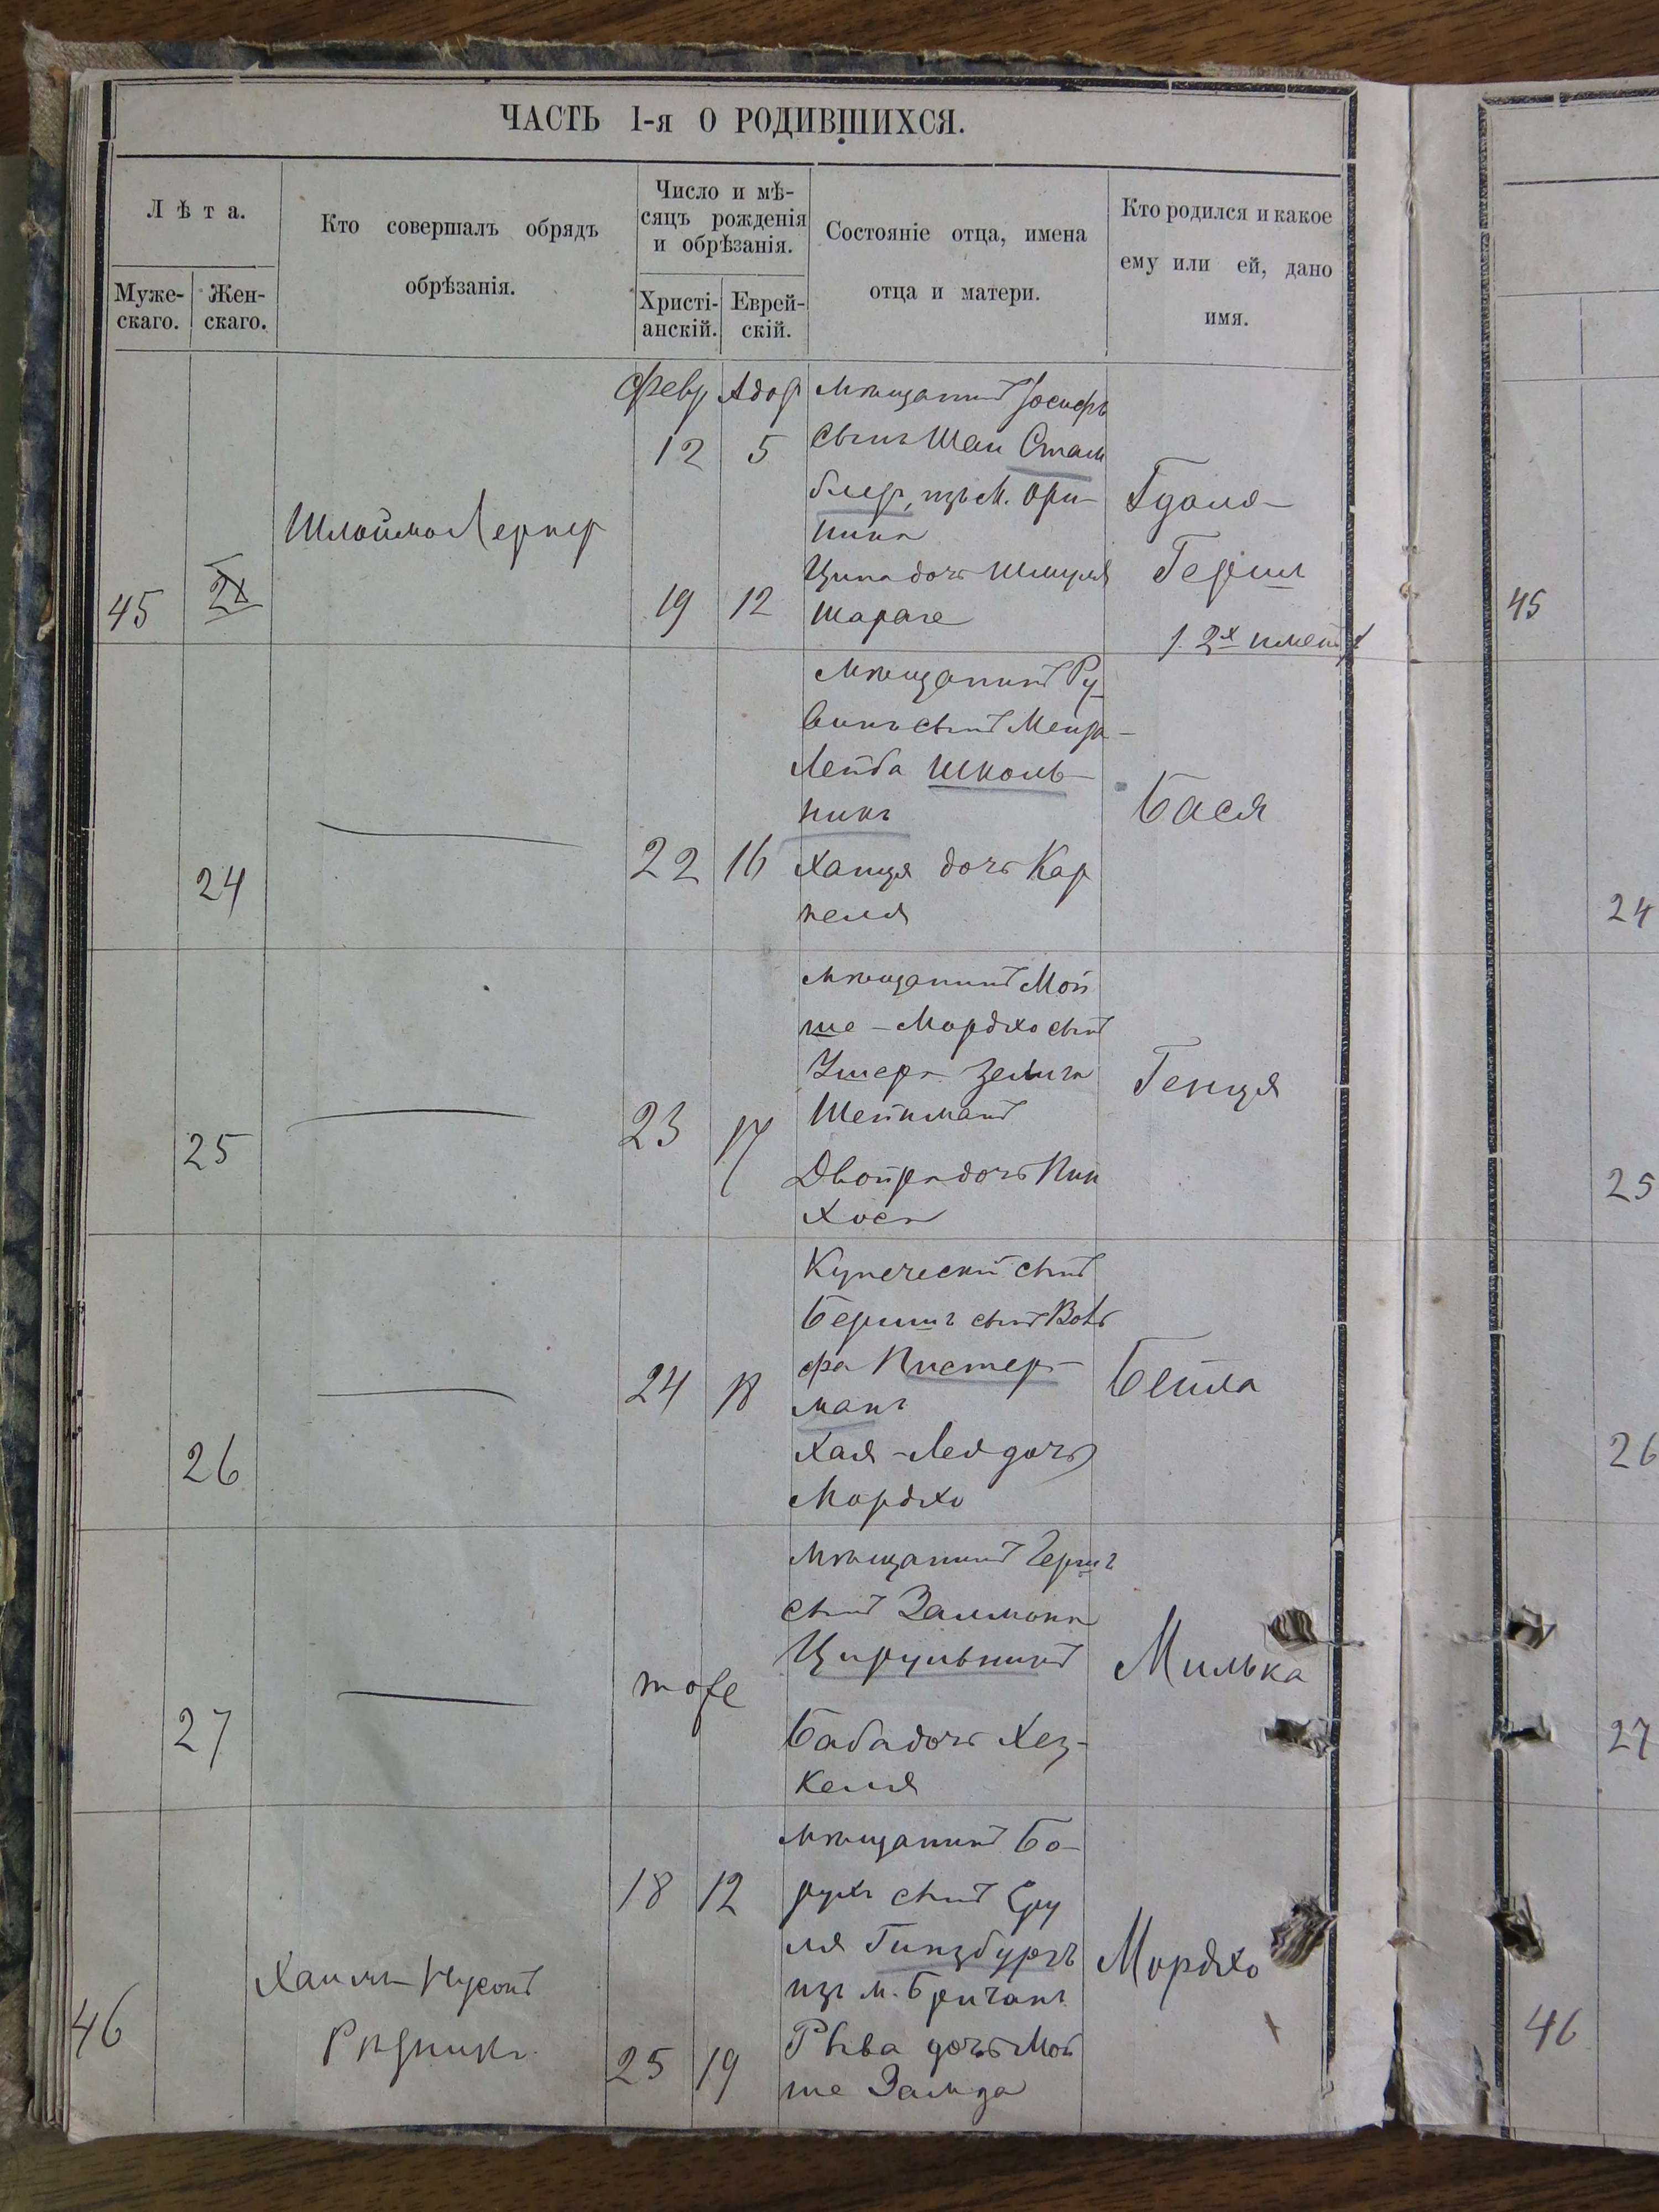 ЧАСТЬ 1-я О РОДИВШИХСЯ.
Лѣта.
Муже-
скаго.
Жен-
скаго.
Кто совершалъ обрядъ
обрѣзанія.
Число и мѣ-
сяцъ рожденія
и обрѣзанія.
Христі-
анскій.
Еврей-
скій.
Состояніе отца, имена
отца и матери.
Кто родился и какое
ему или ей, дано
имя.
45
Шлойма Лернер
Февр Адор
12 5
19 12
мѣщанинъ Іосифъ
сынъ Шаи Стам
блер, изъ м. Ори-
нина
Ципа дочь Шмуля
Шараге
Гдаля-
Герш
2х имен
45
24
22 16
мѣщанинъ Ру
винъ сынъ Менда-
Лейба Школь-
никъ
Ханця дочь Кар
пеля
Бася
24
25
23 17
мѣщанинъ Мой
ше-Мордхо сынъ
Ушера Зелига
Шейнманъ
Двойра дочь Пин
хоса
Генця
25
26
24 18
Купеческій сынъ
Бершъ сынъ Воль
фа Пистер-
манъ
Хая-Лея дочь
Мордхо
Бейла
26
27
тоже
мѣщанинъ Герш
сынъ Залмона
Цирульникъ
Баба дочь Хец-
келя
Милька
27
46
Хаимъ Нусонъ
Рѣзникъ
18 12
25 19
мѣщанинъ Бо-
рухъ сынъ Сру
ля Гинзбургъ
изъ м. Бричанъ
Рыва дочь Мой
ше Замда
Мордхо
46